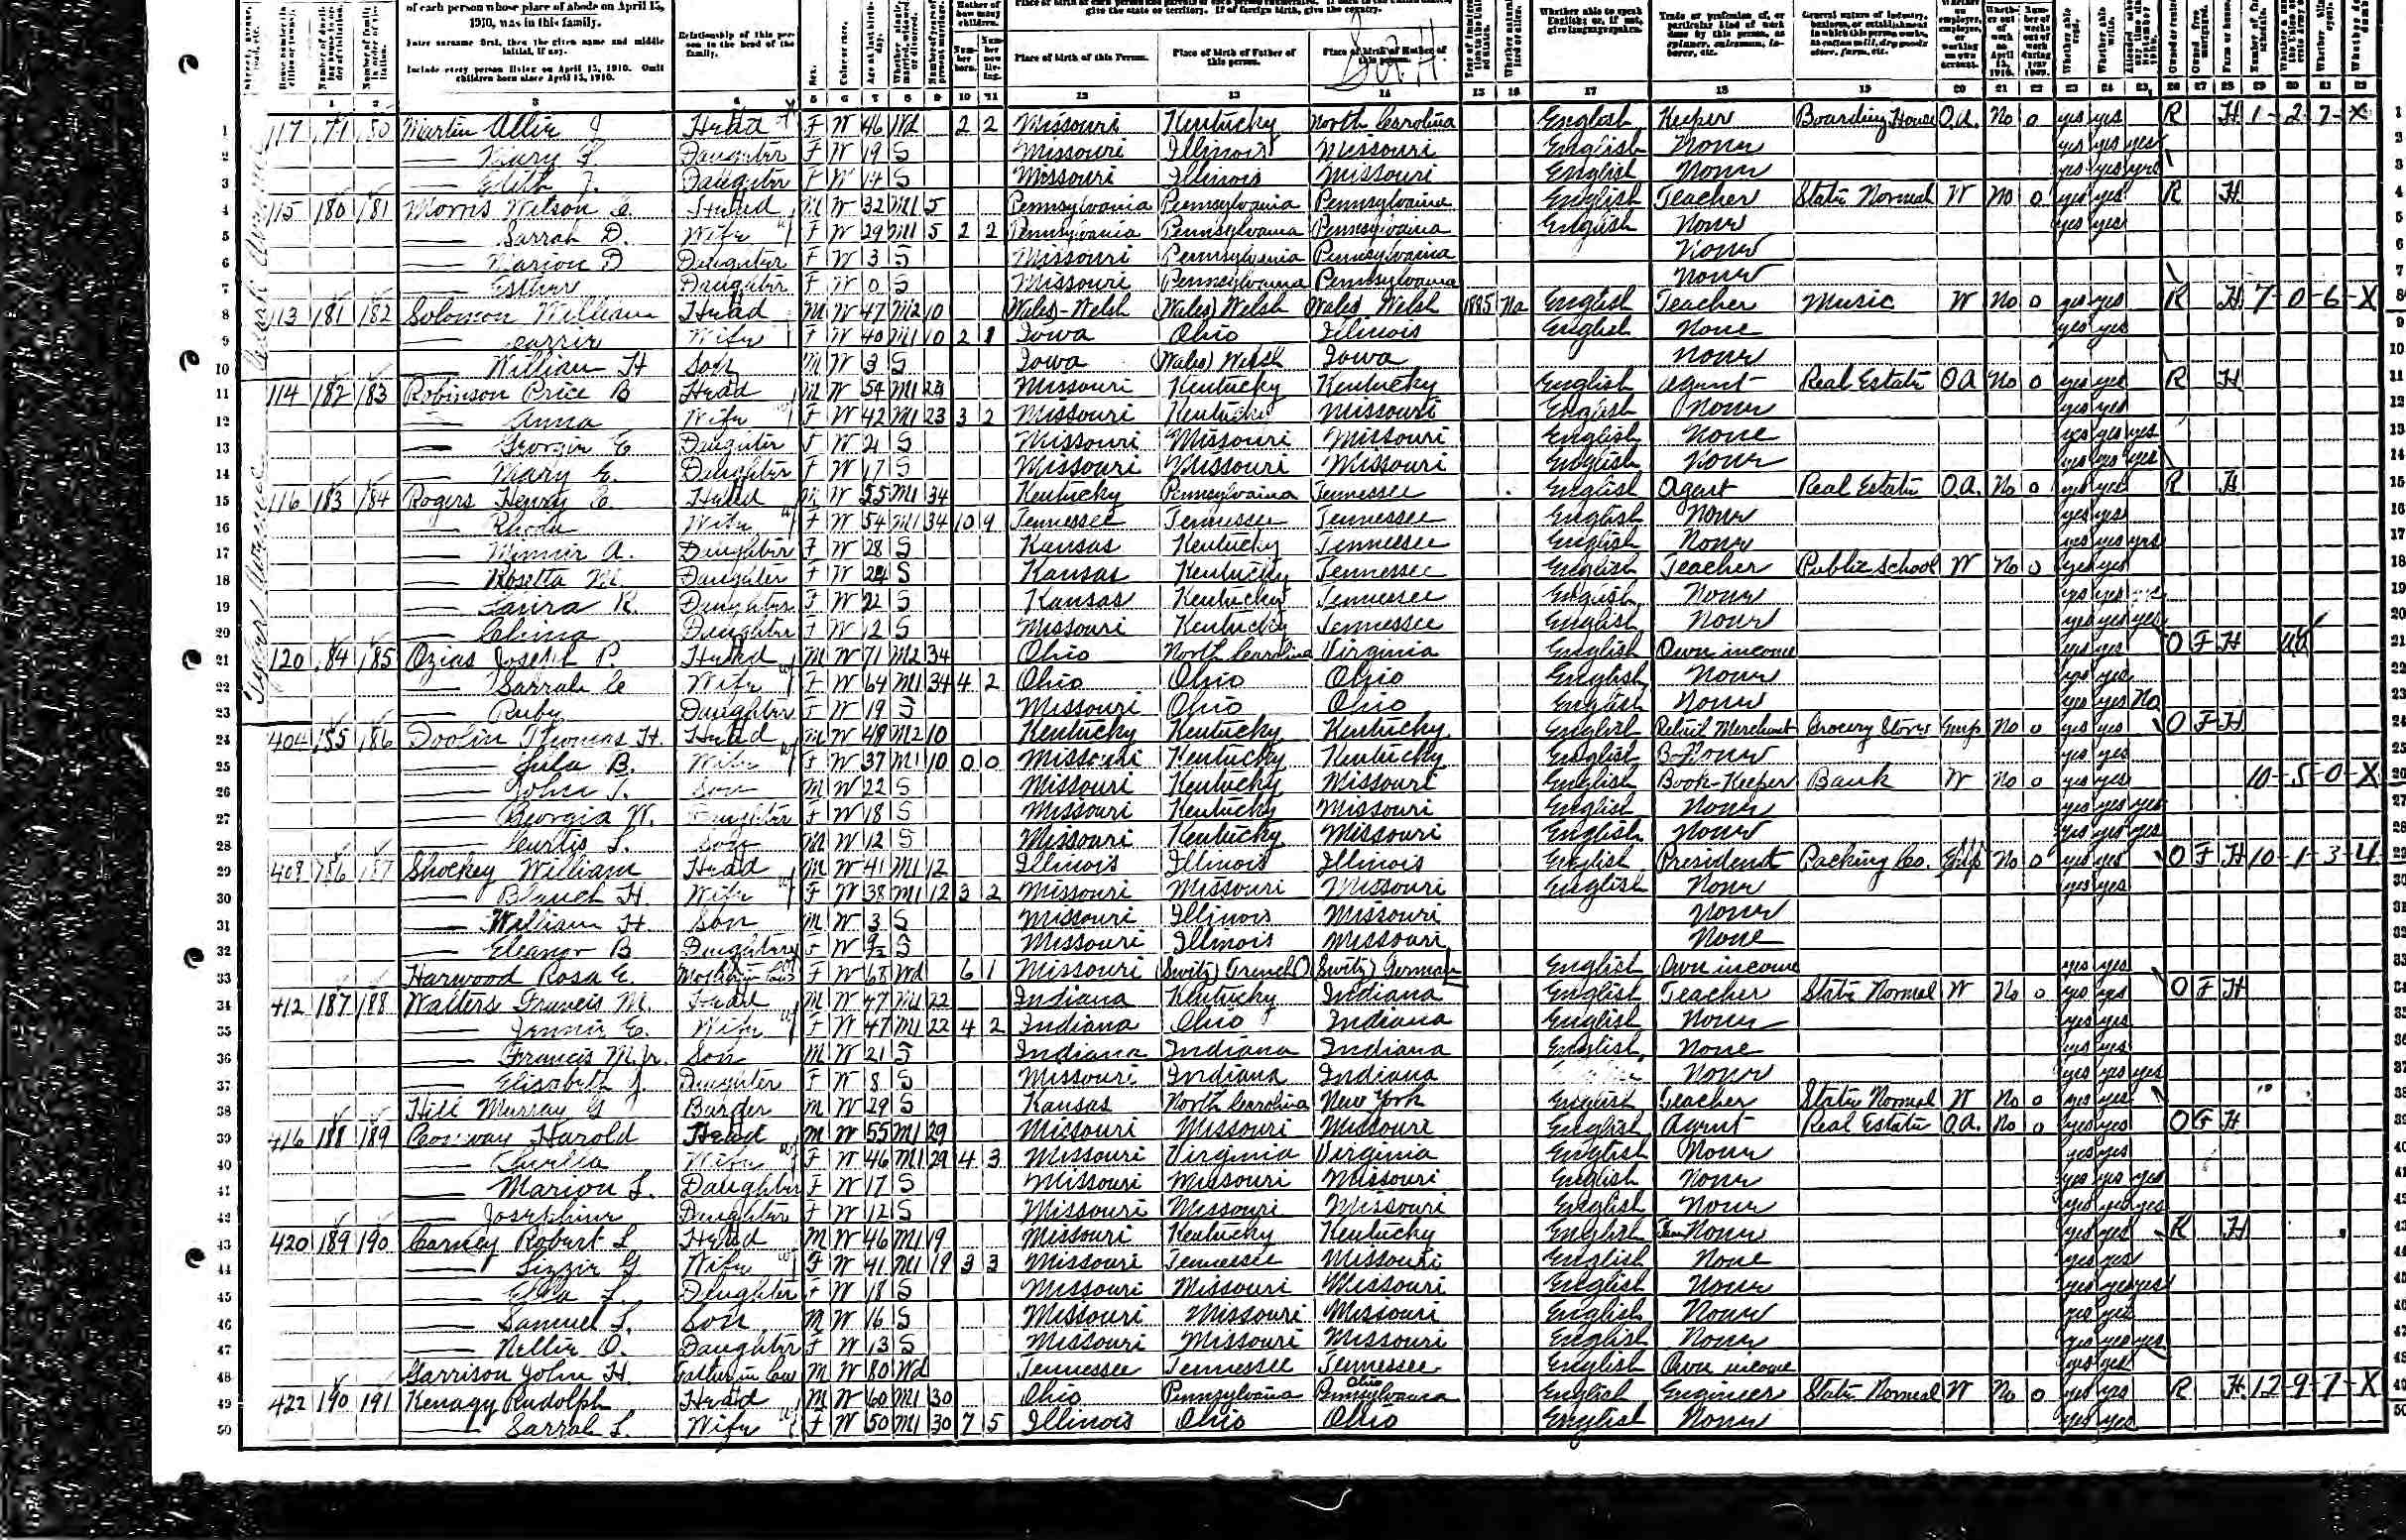 of each person whose place of abode on April 15, 1910, was in this family.
Enter surname first, then the given name and middle initial, if any.
Include every person living on April 15, 1910. Omit children born since April 15, 1910.
Relationship of this person to the head of the family.
Place of birth of this Person. Place of birth of Father of this person. Place of birth of Mother of this person.
Whether able to speak English; or, if not, give language spoken.
1 117 Martin Allie J Head F W 46 Wd 2 2 Missouri Kentucky North Carolina English Keeper Boarding House O.A. No 0 yes yes R H 1-2-7-X
2 Mary F Daughter F W 19 S Missouri Illinois Missouri English None yes yes yes
3 Edith J. Daughter F W 14 S Missouri Illinois Missouri English None yes yes yes
4 115 180 181 Morris Wilson C. Head M W 32 M1 5 Pennsylvania Pennsylvania Pennsylvania English Teacher State Normal W No 0 yes yes R H
5 Sarrah D. Wife F W 29 M1 5 2 2 Pennsylvania Pennsylvania Pennsylvania English None yes yes
6 Marion D Daughter F W 3 S Missouri Pennsylvania Pennsylvania None
7 Esther Daughter F W 0 S Missouri Pennsylvania Pennsylvania None
8 113 181 182 Solomon William Head M W 47 M2 10 Wales-Welsh (Wales) Welsh Wales Welsh 1885 Na English Teacher Music W No 0 yes yes R H 7-0-6-X
9 Carrie Wife F W 40 M1 10 2 1 Iowa Ohio Illinois English None yes yes
10 William H Son M W 3 S Iowa (Wales) Welsh Iowa None
11 114 182 183 Robinson Price B Head M W 54 M1 23 Missouri Kentucky Kentucky English Agent Real Estate O A No 0 yes yes R H
12 Anna Wife F W 42 M1 23 3 2 Missouri Kentucky Missouri English None yes yes
13 Georgia E Daughter F W 21 S Missouri Missouri Missouri English None yes yes yes
14 Mary E. Daughter F W 17 S Missouri Missouri Missouri English None yes yes yes
15 116 183 184 Rogers Henry C. Head M W 55 M1 34 Kentucky Pennsylvania Tennessee English Agent Real Estate O.A. No 0 yes yes R H
16 Rhoda Wife F W 54 M1 34 10 9 Tennessee Tennessee Tennessee English None yes yes
17 Minnie A. Daughter F W 28 S Kansas Kentucky Tennessee English None yes yes yes
18 Rosetta M. Daughter F W 24 S Kansas Kentucky Tennessee English Teacher Public School W No 0 yes yes
19 Laura R. Daughter F W 22 S Kansas Kentucky Tennessee English None yes yes
20 Daughter F W 12 S Missouri Kentucky Tennessee English None yes yes yes
21 120 184 185 Ozias Joseph P. Head M W 71 M2 34 Ohio North Carolina Virginia English Own income yes yes O F H UA
22 Sarrah C Wife F W 64 M1 34 4 2 Ohio Ohio Ohio English None yes yes
23 Ruby Daughter F W 19 S Missouri Ohio Ohio English None yes yes No
24 404 185 186 Doolin Thomas H. Head M W 48 M2 10 Kentucky Kentucky Kentucky English Retail Merchant Grocery Store Emp No 0 yes yes O F H
25 Lula B. Wife F W 37 M1 10 0 0 Missouri Kentucky Kentucky English None yes yes
26 John T. Son M W 22 S Missouri Kentucky Missouri English Book-Keeper Bank W No 0 yes yes 10-5-0-X
27 Georgia W. Daughter F W 18 S Missouri Kentucky Missouri English None yes yes yes
28 Curtis L. Son M W 12 S Missouri Kentucky Missouri English None yes yes yes
29 408 186 187 Shockey William Head M W 41 M1 12 Illinois Illinois Illinois English President Packing Co. Emp No 0 yes yes O F H 10-1-3-4
30 Blanch H. Wife F W 38 M1 12 3 2 Missouri Missouri Missouri English None yes yes
31 William H Son M W 3 S Missouri Illinois Missouri None
32 Eleanor B Daughter F W S Missouri Illinois Missouri None
33 Harwood Rosa E. Mother in law F W 68 Wd 6 1 Missouri (Switz) French (Switz) German English Own income yes yes
34 412 187 188 Walters Francis M. Head M W 47 M1 22 Indiana Kentucky Indiana English Teacher State Normal W No 0 yes yes O F H
35 Jannie E. Wife F W 47 M1 22 4 2 Indiana Ohio Indiana English None yes yes
36 Francis M. Jr. Son M W 21 S Indiana Indiana Indiana English None yes yes
37 Elisabeth J. Daughter F W 8 S Missouri Indiana Indiana None yes yes yes
38 Hill Murray G Border M W 29 S Kansas North Carolina New York English Teacher State Normal W No 0 yes yes
39 416 188 189 Conway Harold Head M W 55 M1 29 Missouri Missouri Missouri English Agent Real Estate O.A. No 0 yes yes O F H
40 Luvilla Wife F W 46 M1 29 4 3 Missouri Virginia Virginia English None yes yes
41 Marion L. Daughter F W 17 S Missouri Missouri Missouri English None yes yes yes
42 Josephine Daughter F W 12 S Missouri Missouri Missouri English None yes yes yes
43 420 189 190 Carney Robert L Head M W 46 M1 19 Missouri Kentucky Kentucky English None yes yes R H
44 Lizzie G Wife F W 41 M1 19 3 3 Missouri Tennessee Missouri English None yes yes
45 Ella L. Daughter F W 18 S Missouri Missouri Missouri English None yes yes yes
46 Samuel L. Son M W 16 S Missouri Missouri Missouri English None yes yes
47 Nellie O. Daughter F W 13 S Missouri Missouri Missouri English None yes yes yes
48 Garrison John H. Father in law M W 80 Wd Tennessee Tennessee Tennessee English Own income yes yes
49 422 190 191 Kenagy Rudolph Head M W 60 M1 30 Ohio Pennsylvania Ohio Pennsylvania English Engineer State Normal W No 0 yes yes R H 12-9-7-X
50 Sarrah L. Wife F W 50 M1 30 7 5 Illinois Ohio Ohio English None yes yes